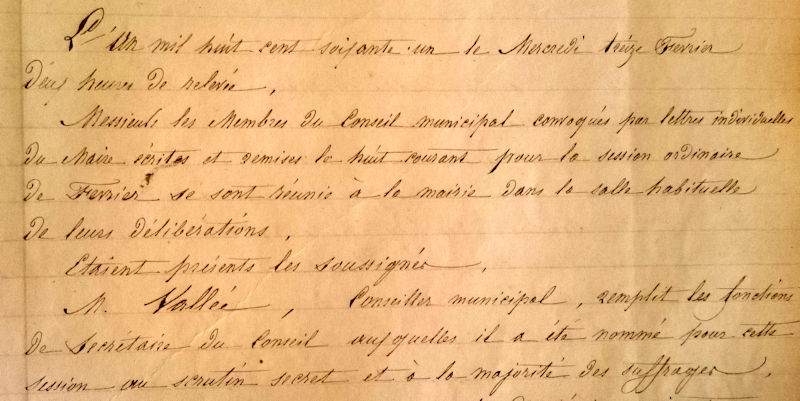 L'An mil huit cent soixante-un le Mercredi treize Fevrier
deux heures de relevée,
Messieurs les Membres du Conseil municipal convoqués par lettres individuelles
du Maire écrites et remises le huit courant pour la session ordinaire
de Fevrier se sont réunis à la mairie dans la salle habituelle
de leurs délibérations,
Etaient présents les soussignés,
M. Vallée, Conseiller municipal, remplit les fonctions
de Secrétaire du Conseil auxquelles il a été nommé pour cette
session au scrutin secret et à la majorité des suffrages,